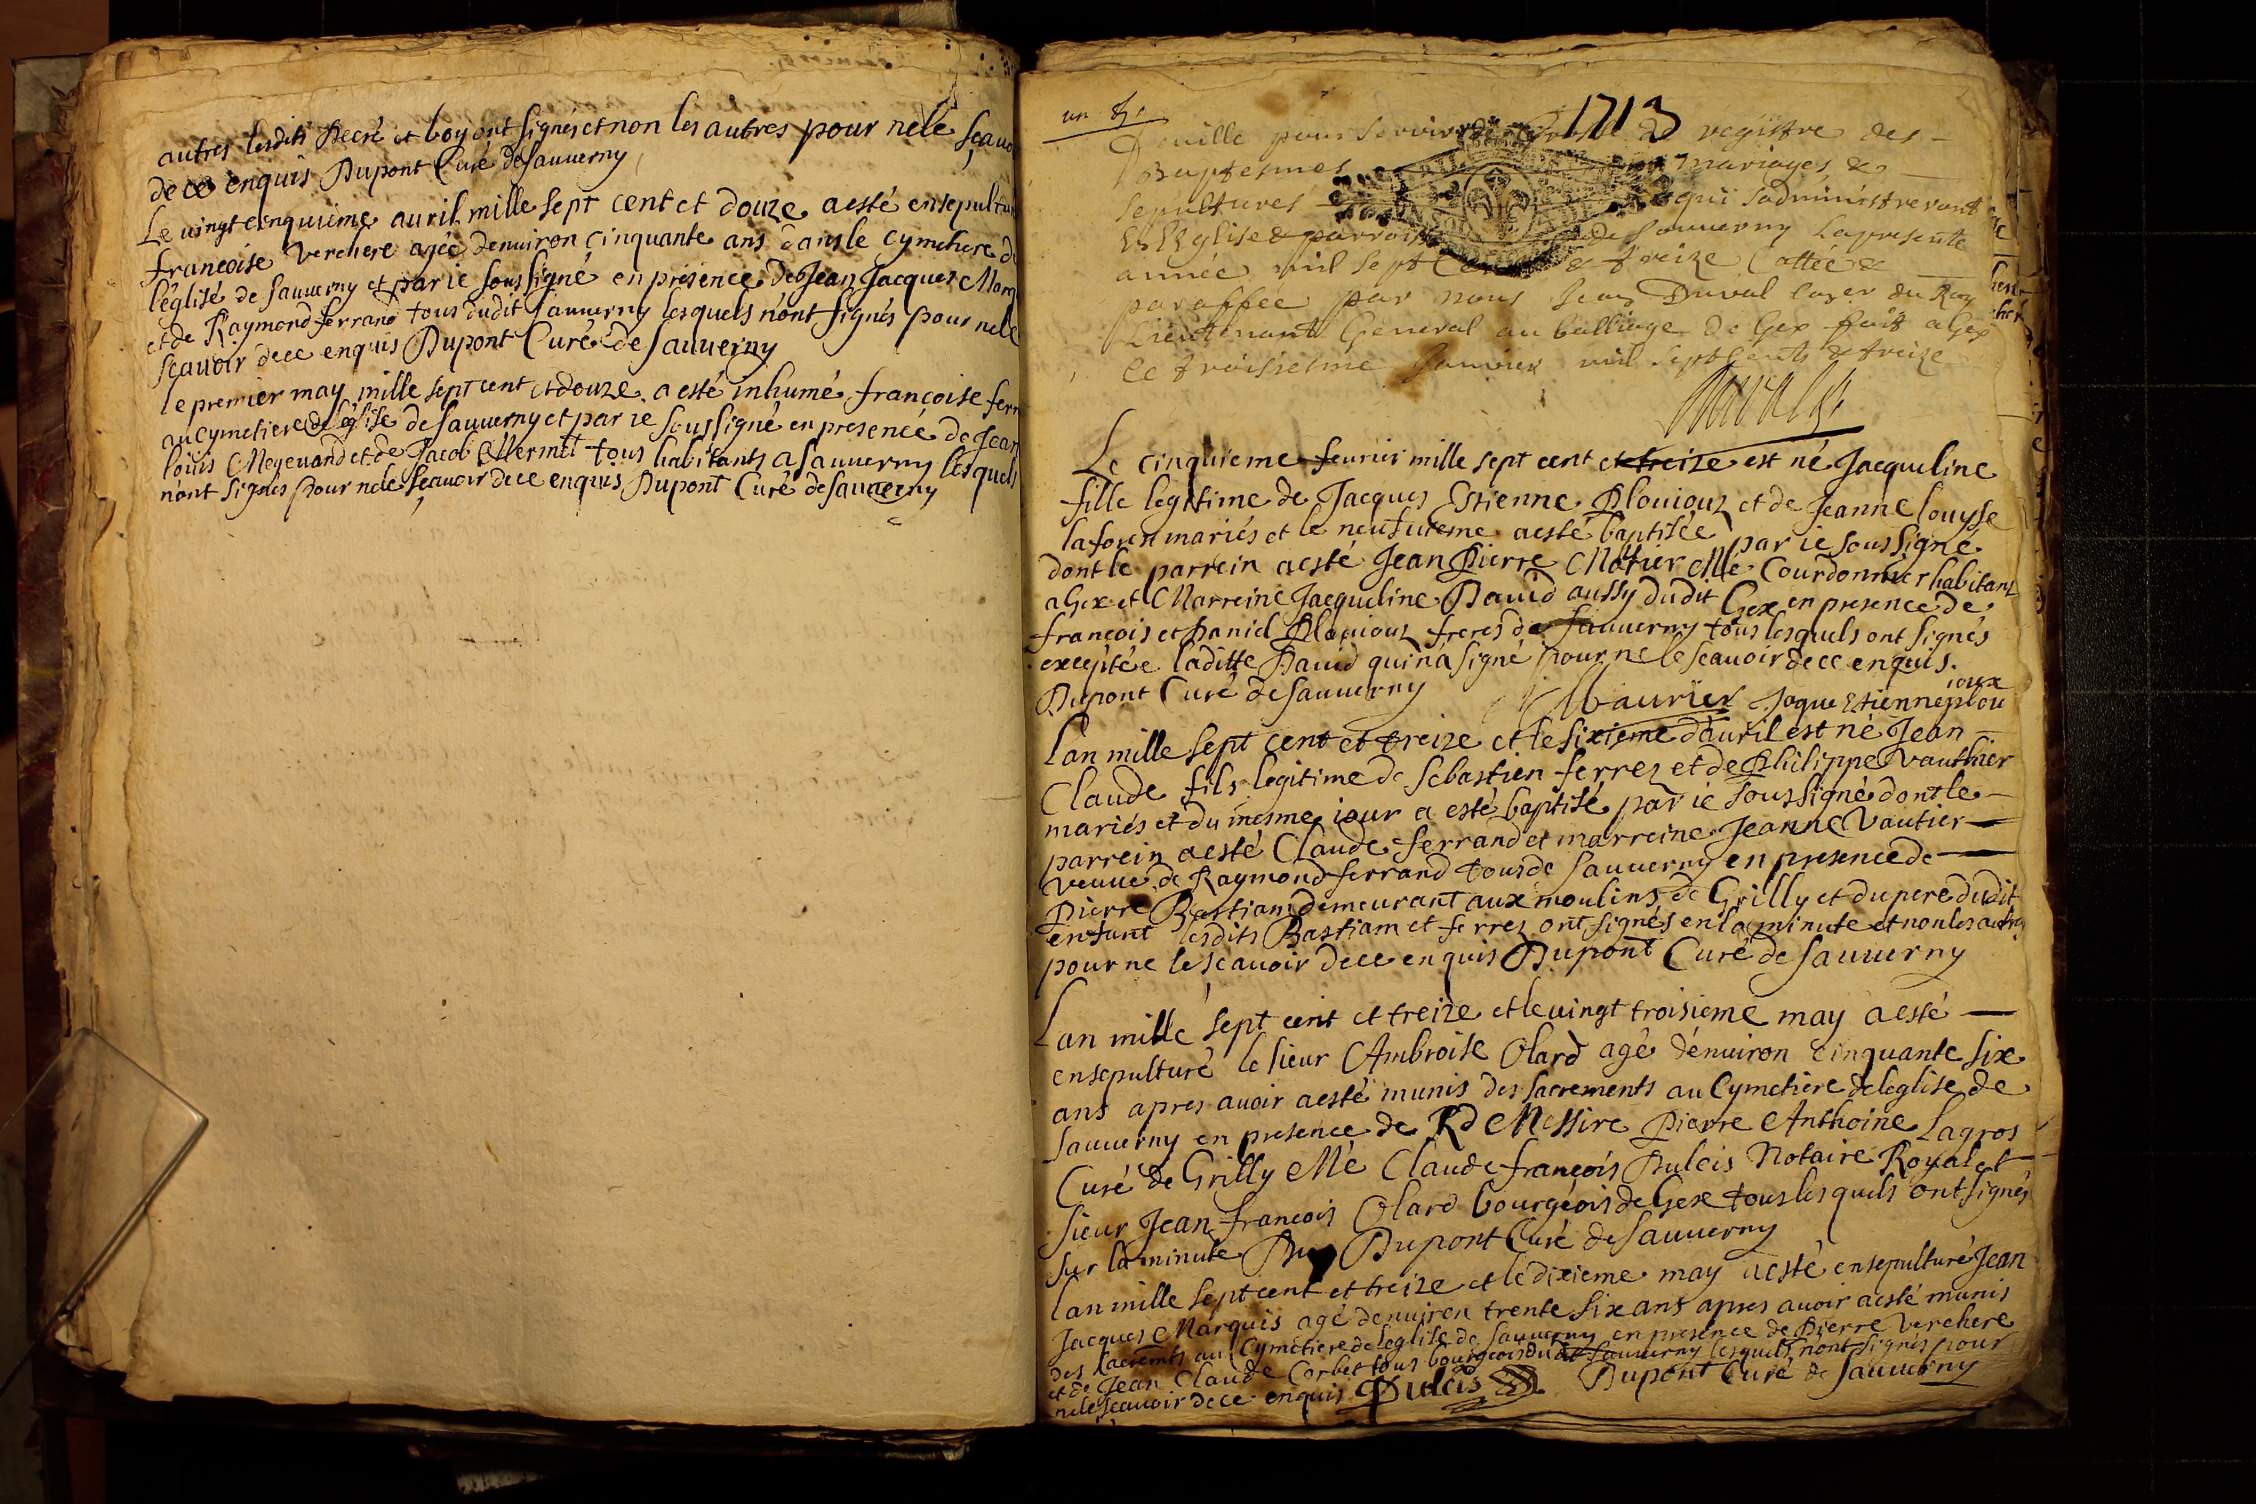 autres lesdits Decré et boy ont signés et non les autres pour ne le scavo
de ce enquis Dupont Curé de Sauverny
Le vingt cinquieme avril mille sept cent et douze a esté ensepultur
francoise Verchere agée denuiron cinquante ans dans le Cymetiere de
l'église de Sauverny et par ie soussigné en présence de Jean Jacques Marq
et de Raymond ferrand tous dudit Sauverny lesquels n'ont signés pour ne le
scauoir de ce enquis Dupont Curé de Sauverny
le premier may mille sept cent et douze a esté inhumé françoise ferr
au Cymetiere de l'église de Sauverny et par ie soussigné en presence de Jean
loüis Megevand et de Jacob Mermet tous habitants a Sauverny lesquels
n'ont signés pour ne le scauoir de ce enquis Dupont Curé de Sauverny
1713
feuille pour servir de registre des
Baptesmes mariages &
sepultures qui s'administreront
En l'Eglise & parroisse de Sauverny la presente
année mil sept Cent & treize Cottée &
paraffée par nous Jean Duval Coner du Roy
Lieutenant General au balliage de Gex fait a Gex
le troisiesme Janvier mil sept Cents & treize
Duval
Le cinquieme feurier mille sept cent et treize est né Jacqueline
fille legitime de Jacques Estienne Plouiouz et de Jeanne louyse
laforen mariés et le neufuieme a esté baptisée par ie soussigné
dont le parrein a esté Jean Pierre Motier Me Courdonnier habitant
a Gex et Marreine Jacqueline David aussy dudit Gex en presence de
françois et Daniel Plouiouz freres de Sauverny tous lesquels ont signés
exceptée laditte David qui n'a signé pour ne le scauoir de ce enquis.
Dupont Curé de Sauverny Maurier Joque Etienne plou
ioux
L'an mille sept cent et treize et le sixieme d'auril est né Jean
Claude fils legitime de Sebastien ferrez et de Philippe Vauthier
mariés et du mesme iour a esté baptisé par ie soussigné dont le
parrein a esté Claude ferrand et marreine Jeanne Vautier
veuue de Raymond ferrand tous de Sauverny en presence de
pierre Bastiam demeurant aux moulins de Grilly et du pere dudit
enfant lesdits Bastiam et ferrez ont signés en la minute et non les autres
pour ne le scauoir de ce enquis Dupont Curé de Sauverny
L'an mille sept cent et treize et le vingt troisieme may a esté
ensepulturé le sieur Ambroise Olard agé d'enuiron cinquante six
ans apres avoir a esté munis des sacrements au Cymetiere de leglise de
Sauverny en presence de Rd Messire Pierre Anthoine Lagros
Curé de Grilly Me Claude françois Dulcis Notaire Royal et
sieur Jean francois Olard bourgeois de Gex tous lesquels ont signés
sur la minute Dupont Curé de Sauverny
L'an mille sept cent et treize et le dixieme may a esté ensepulturé Jean
Jacques Marquis agé denuiron trente six ans apres avoir a esté munis
des sacremts au Cymetiere de leglise de Sauverny en presence de Pierre Verchere
et de Jean Claude Corbet tous bourgeois dudit Sauverny lesquels n'ont signés pour
ne le scauoir de ce enquis Dulcis Dupont Curé de Sauverny